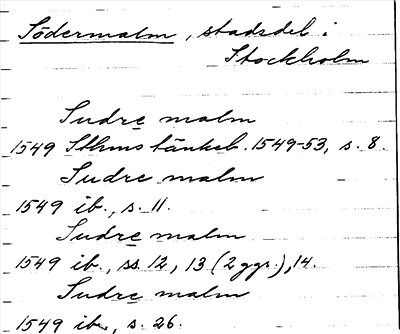 Södermalm, stadsdel i
Stockholm
Sudre malm
1549 Sthms tänkeb. 1549-53, s. 8.
Sudre malm
1549 ib., s. 11.
Sudre malm
1549 ib., ss. 12, 13 (2 ggr.), 14.
Sudre malm
1549 ib., s. 26.